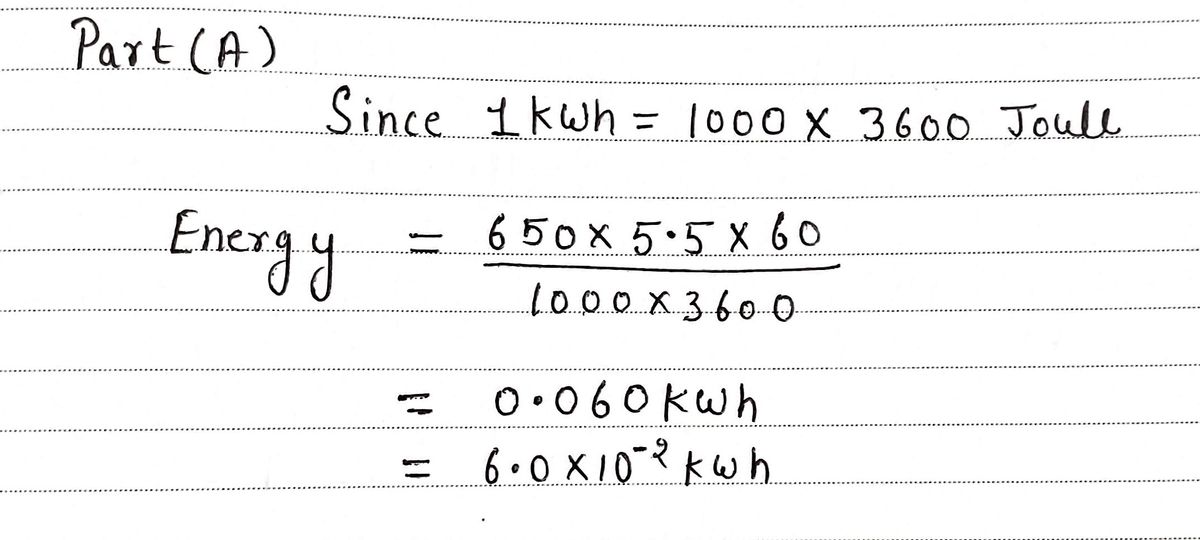 Part (A)
Since 1 kwh = 1000 X 3600 Joule
Energy = 650 x 5.5 x 60
1000 x 3600
= 0.060 kwh
= 6.0 X 10⁻² kwh